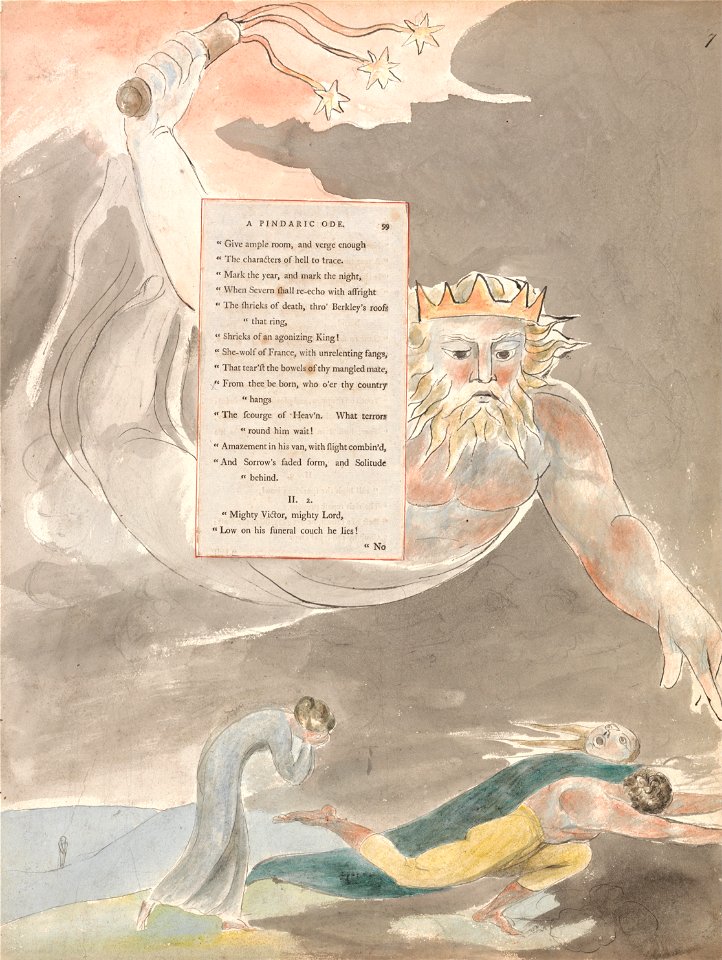 7
A PINDARIC ODE. 59
“ Give ample room, and verge enough
“ The characters of hell to trace.
“ Mark the year, and mark the night,
“ When Severn ſhall re-echo with affright
“ The ſhrieks of death, thro' Berkley's roofs
“ that ring,
“ Shrieks of an agonizing King!
“ She-wolf of France, with unrelenting fangs,
“ That tear'ſt the bowels of thy mangled mate,
“ From thee be born, who o'er thy country
“ hangs
“ The ſcourge of Heav'n. What terrors
“ round him wait!
“ Amazement in his van, with flight combin'd,
“ And Sorrow's faded form, and Solitude
“ behind.
II. 2.
“ Mighty Victor, mighty Lord,
“ Low on his funeral couch he lies!
“ No